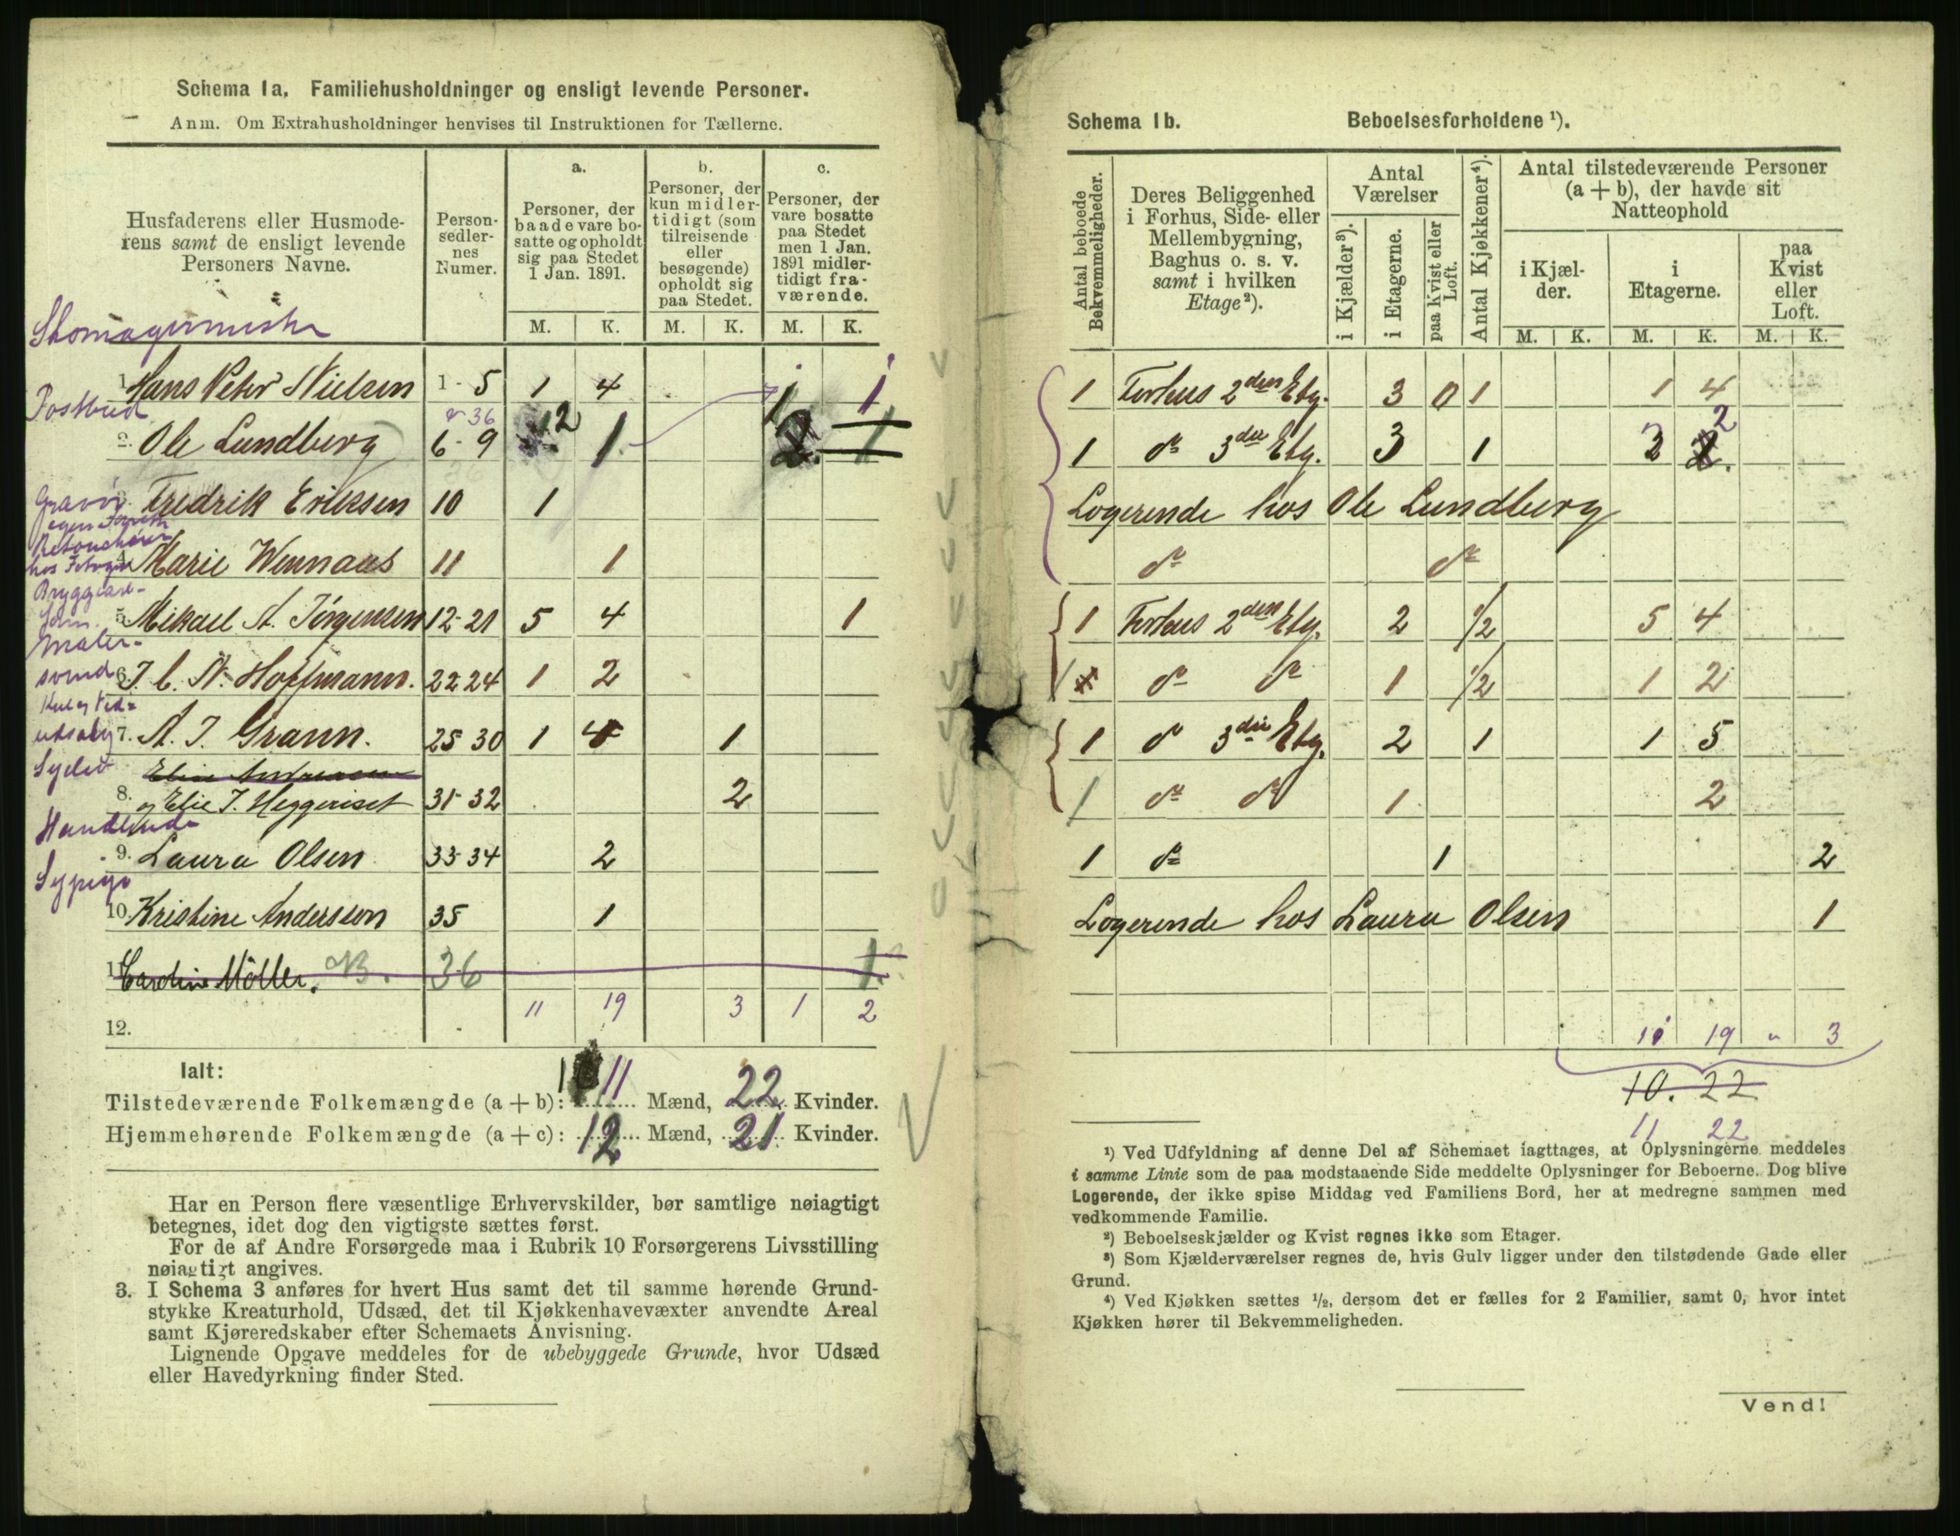 Schema 1a. Familiehusholdninger og ensligt levende Personer.
Anm. Om Extrahusholdninger henvises til Instruktionen for Tællerne.
Husfaderens eller Husmoderens samt de ensligt levende Personers Navne.
Personsedlernes Numer.
a.
Personer, der baade vare bosatte og opholdt sig paa Stedet 1 Jan. 1891.
b.
Personer, der kun midlertidigt (som tilreisende eller besøgende) opholdt sig paa Stedet.
c.
Personer, der vare bosatte paa Stedet men 1 Jan. 1891 midlertidigt fraværende.
M. K. M. K. M. K.
Skomagermester
1. Hans Peter Nielsen 1-5 1 4 1 1
Postbud
2. Ole Lundberg 6-9 36 2 1 2 1
Gravør
3. Fredrik Eriksen 10 1
4. Marie Wennaas 11 1
Bryggeare-
5. Mikael A. Jørgensen 12-21 5 4 1
Maler-
svend
6. J. C. N. Hoffmann. 22-24 1 2
Kul og Ved-
udsalg
7. A. J. Grann. 25-30 1 4 1
8. og Elie J. Heggeriset 31-32 2
Handlende
9. Laura Olsen 33-34 2
Sypige
10. Kristine Andersson 35 1
11. Caroline Möller. 36 1
11 19 3 1 2
12.
Ialt:
Tilstedeværende Folkemængde (a+b): 11 Mænd, 22 Kvinder.
Hjemmehørende Folkemængde (a+c): 12 Mænd, 21 Kvinder.
Har en Person flere væsentlige Erhvervskilder, bør samtlige nøiagtigt
betegnes, idet dog den vigtigste sættes først.
For de af Andre Forsørgede maa i Rubrik 10 Forsørgerens Livsstilling
nøiagtigt angives.
3. I Schema 3 anføres for hvert Hus samt det til samme hørende Grund-
stykke Kreaturhold, Udsæd, det til Kjøkkenhavevæxter anvendte Areal
samt Kjøreredskaber efter Schemaets Anvisning.
Lignende Opgave meddeles for de ubebyggede Grunde, hvor Udsæd
eller Havedyrkning finder Sted.
Schema 1b. Beboelsesforholdene ¹).
Antal beboede Bekvemmeligheder.
Deres Beliggenhed i Forhus, Side- eller Mellembygning, Baghus o. s. v. samt i hvilken Etage²).
Antal Værelser
i Kjælder³).
i Etagerne.
paa Kvist eller Loft.
Antal Kjøkkener⁴).
Antal tilstedeværende Personer (a+b), der havde sit Natteophold
i Kjælder.
i Etagerne.
paa Kvist eller Loft.
M. K. M. K. M. K.
1 Forhus 2den Etg. 3 0 1 1 4
1 do 3die Etg. 3 1 3 2
Logerende hos Ole Lundberg
do do
1 Forhus 2den Etg. 2 1/2 5 4
1 do do 1 1/2 1 2
1 do 3die Etg. 2 1 1 5
1 do do 1 2
1 do 1 2
Logerende hos Laura Olsen 1
11 19 " 3
10. 22
11 22
¹) Ved Udfyldning af denne Del af Schemaet iagttages, at Oplysningerne meddeles
i samme Linie som de paa modstaaende Side meddelte Oplysninger for Beboerne. Dog blive
Logerende, der ikke spise Middag ved Familiens Bord, her at medregne sammen med
vedkommende Familie.
²) Beboelseskjælder og Kvist regnes ikke som Etager.
³) Som Kjælderværelser regnes de, hvis Gulv ligger under den tilstødende Gade eller
Grund.
⁴) Ved Kjøkken sættes ½, dersom det er fælles for 2 Familier, samt 0, hvor intet
Kjøkken hører til Bekvemmeligheden.
Vend!